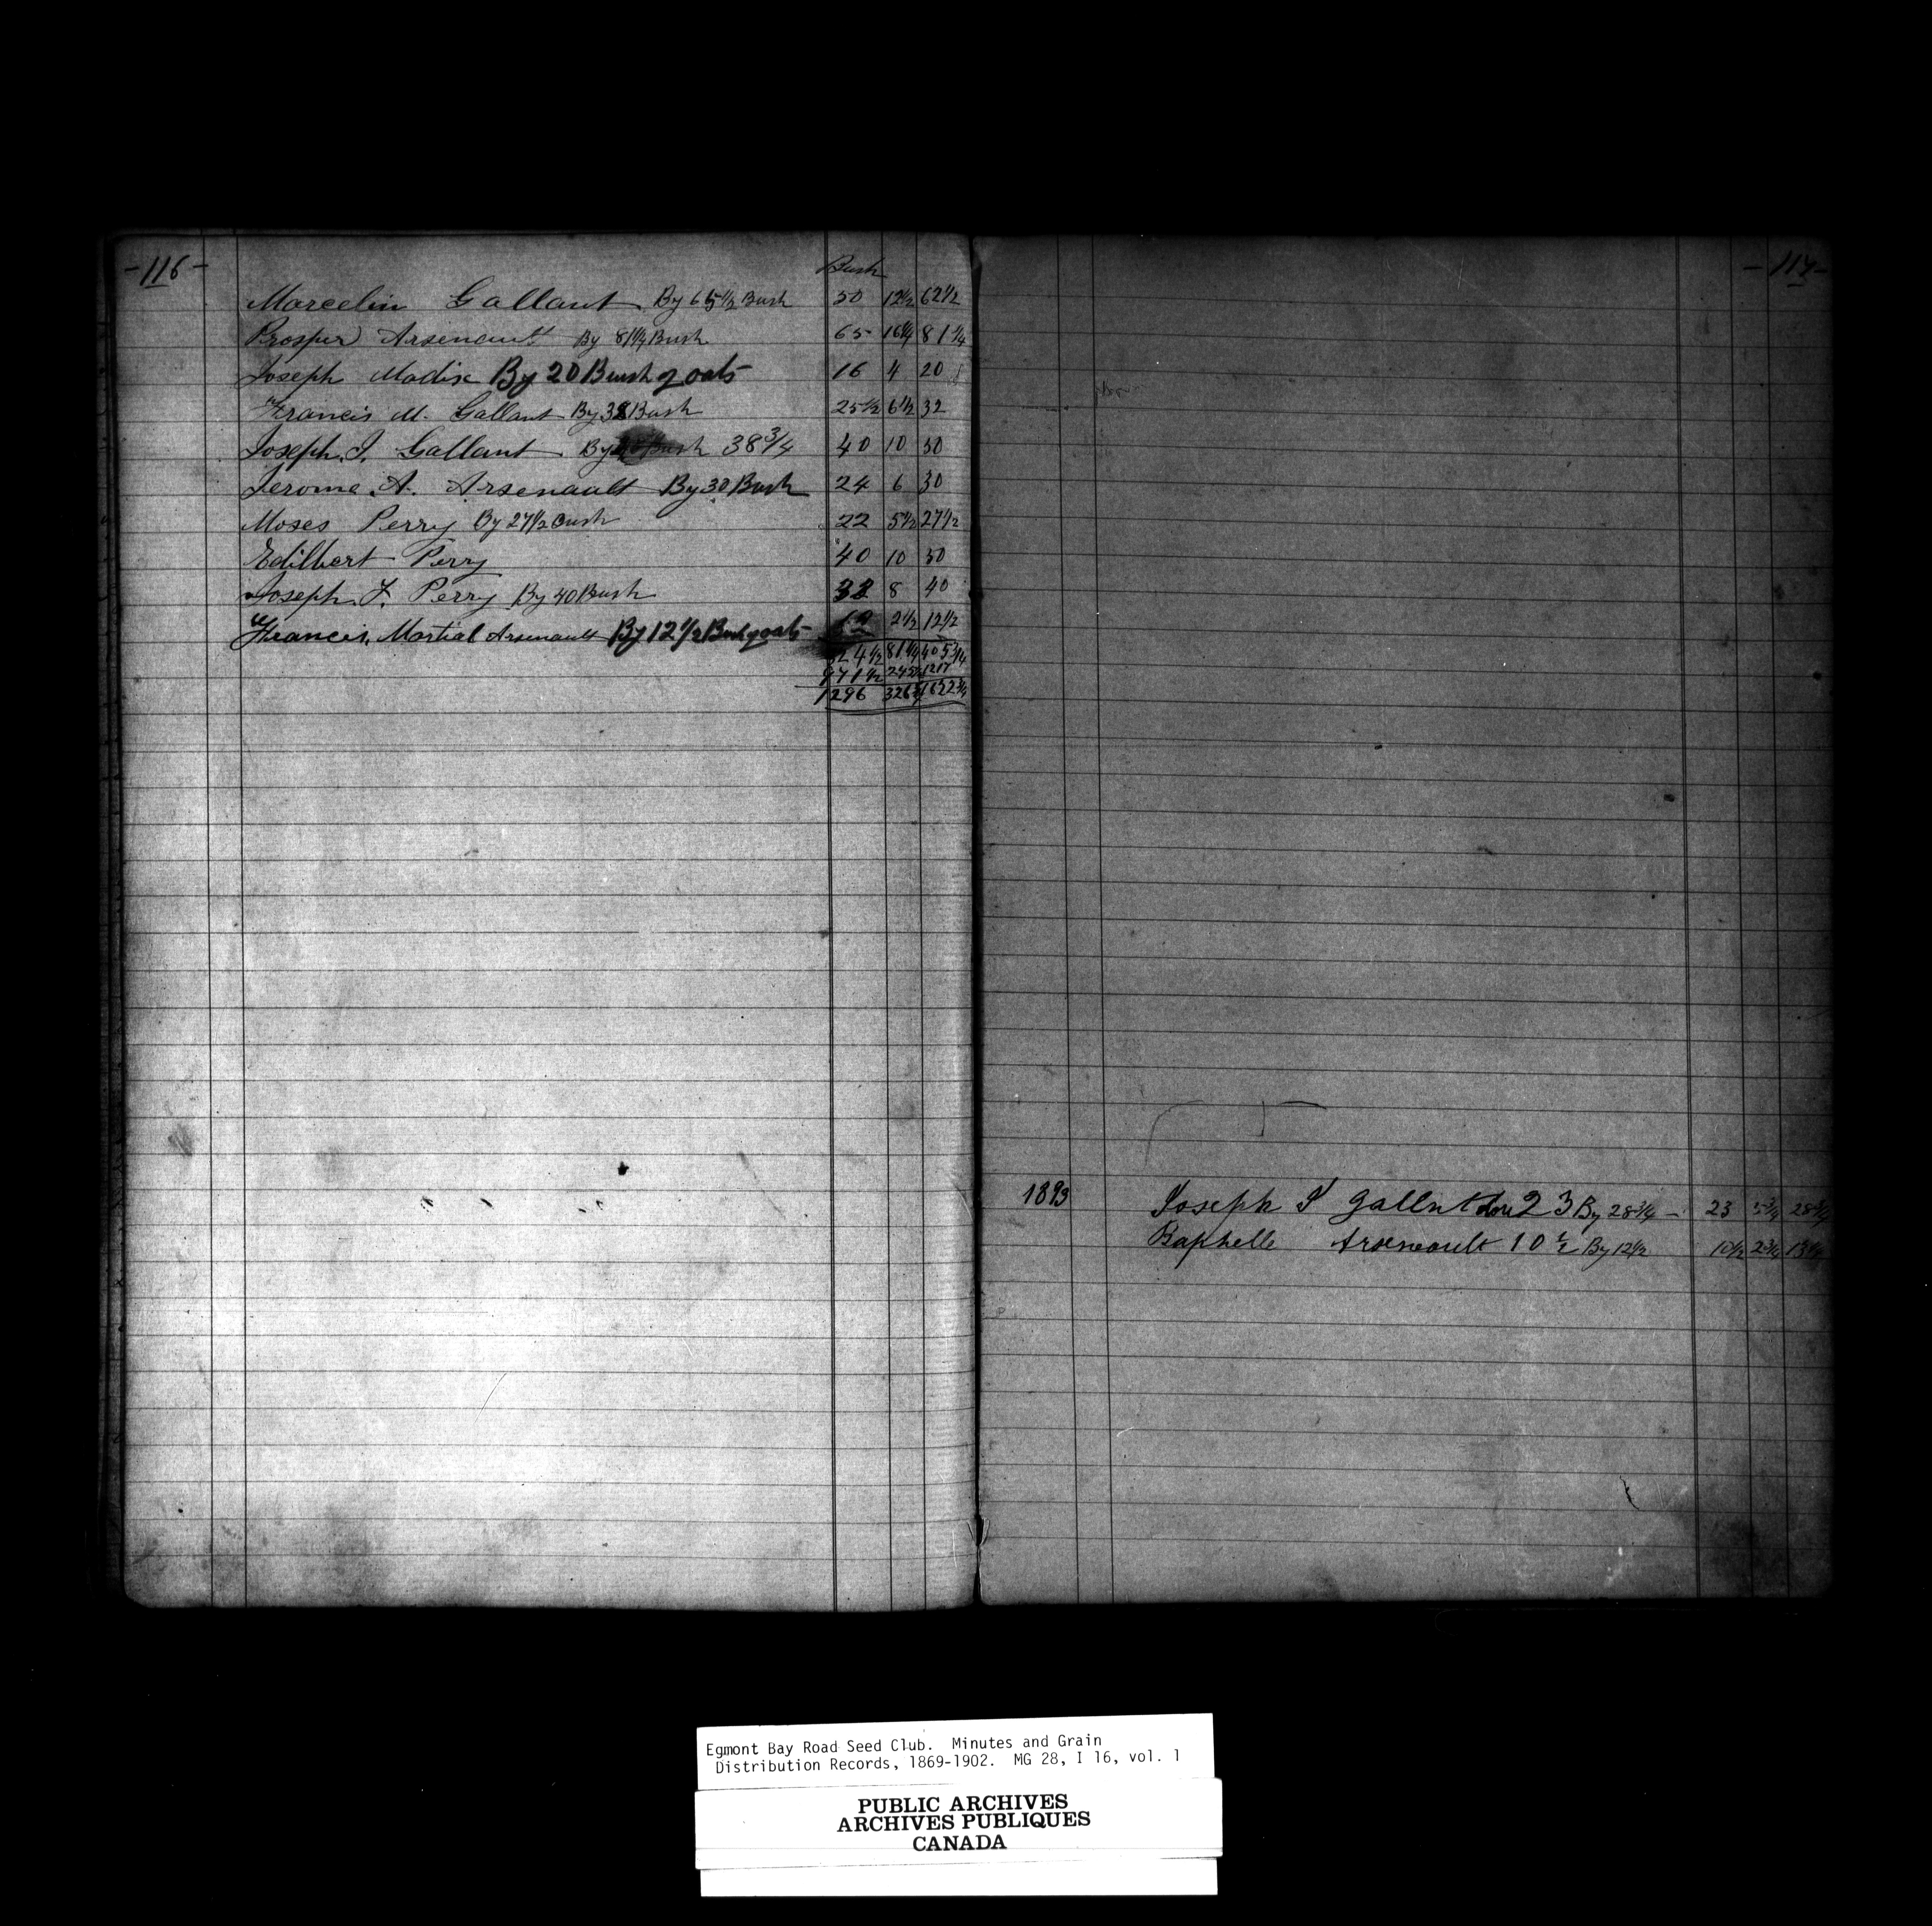 -116-
Bush
Marcelin Gallant By 65 1/2 Bush 50 12 1/2 62 1/2
Prosper Arsenault By 81 1/4 Bush 65 16 1/4 81 1/4
Joseph Madix By 20 Bush of oats 16 4 20
Francis M. Gallant By 32 Bush 25 1/2 6 1/2 32
Joseph J. Gallant By Bush 38 3/4 40 10 50
Jerome A. Arsenault By 30 Bush 24 6 30
Moses Perry By 27 1/2 Bush 22 5 1/2 27 1/2
Edilbert Perry 40 10 50
Joseph F. Perry By 40 Bush 32 8 40
Francis Martial Arsenault By 12 1/2 Bush of oats 10 2 1/2 12 1/2
324 1/2 81 1/4 405 3/4
971 1/2 1217
1296 1622 3/4
-117-
1893 Joseph J Gallnt 23 By 28 3/4 - 23 5 3/4 28 3/4
Raphelle Arseneault 10 1/2 By 12 1/2 10 1/2 2 3/4 13 1/4
Egmont Bay Road Seed Club. Minutes and Grain
Distribution Records, 1869-1902. MG 28, I 16, vol. 1
PUBLIC ARCHIVES
ARCHIVES PUBLIQUES
CANADA